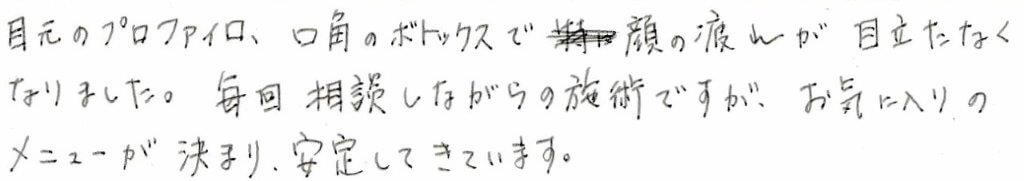 目元のプロファイロ、口角のボトックスで顔の疲れが目立たなく
なりました。毎回相談しながらの施術ですが、お気に入りの
メニューが決まり、安定してきています。